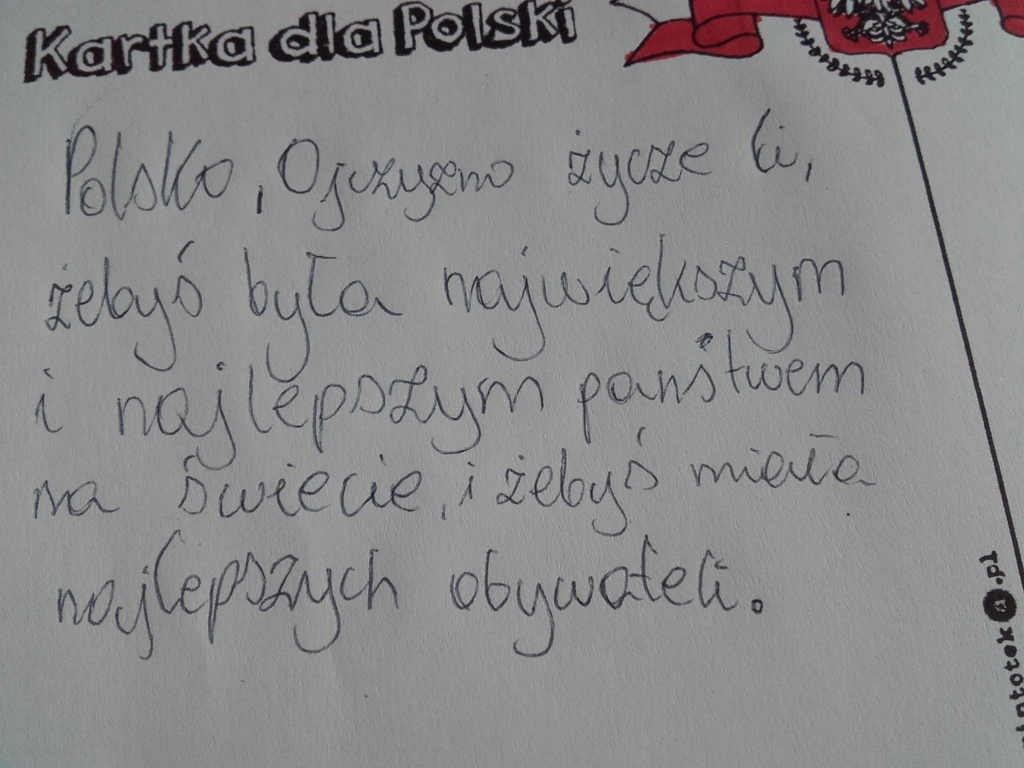 Kartka dla Polski
Polsko, Ojczyzno życze Ci,
żebyś była największym
i najlepszym państwem
na świecie, i żebyś miała
najlepszych obywateli.